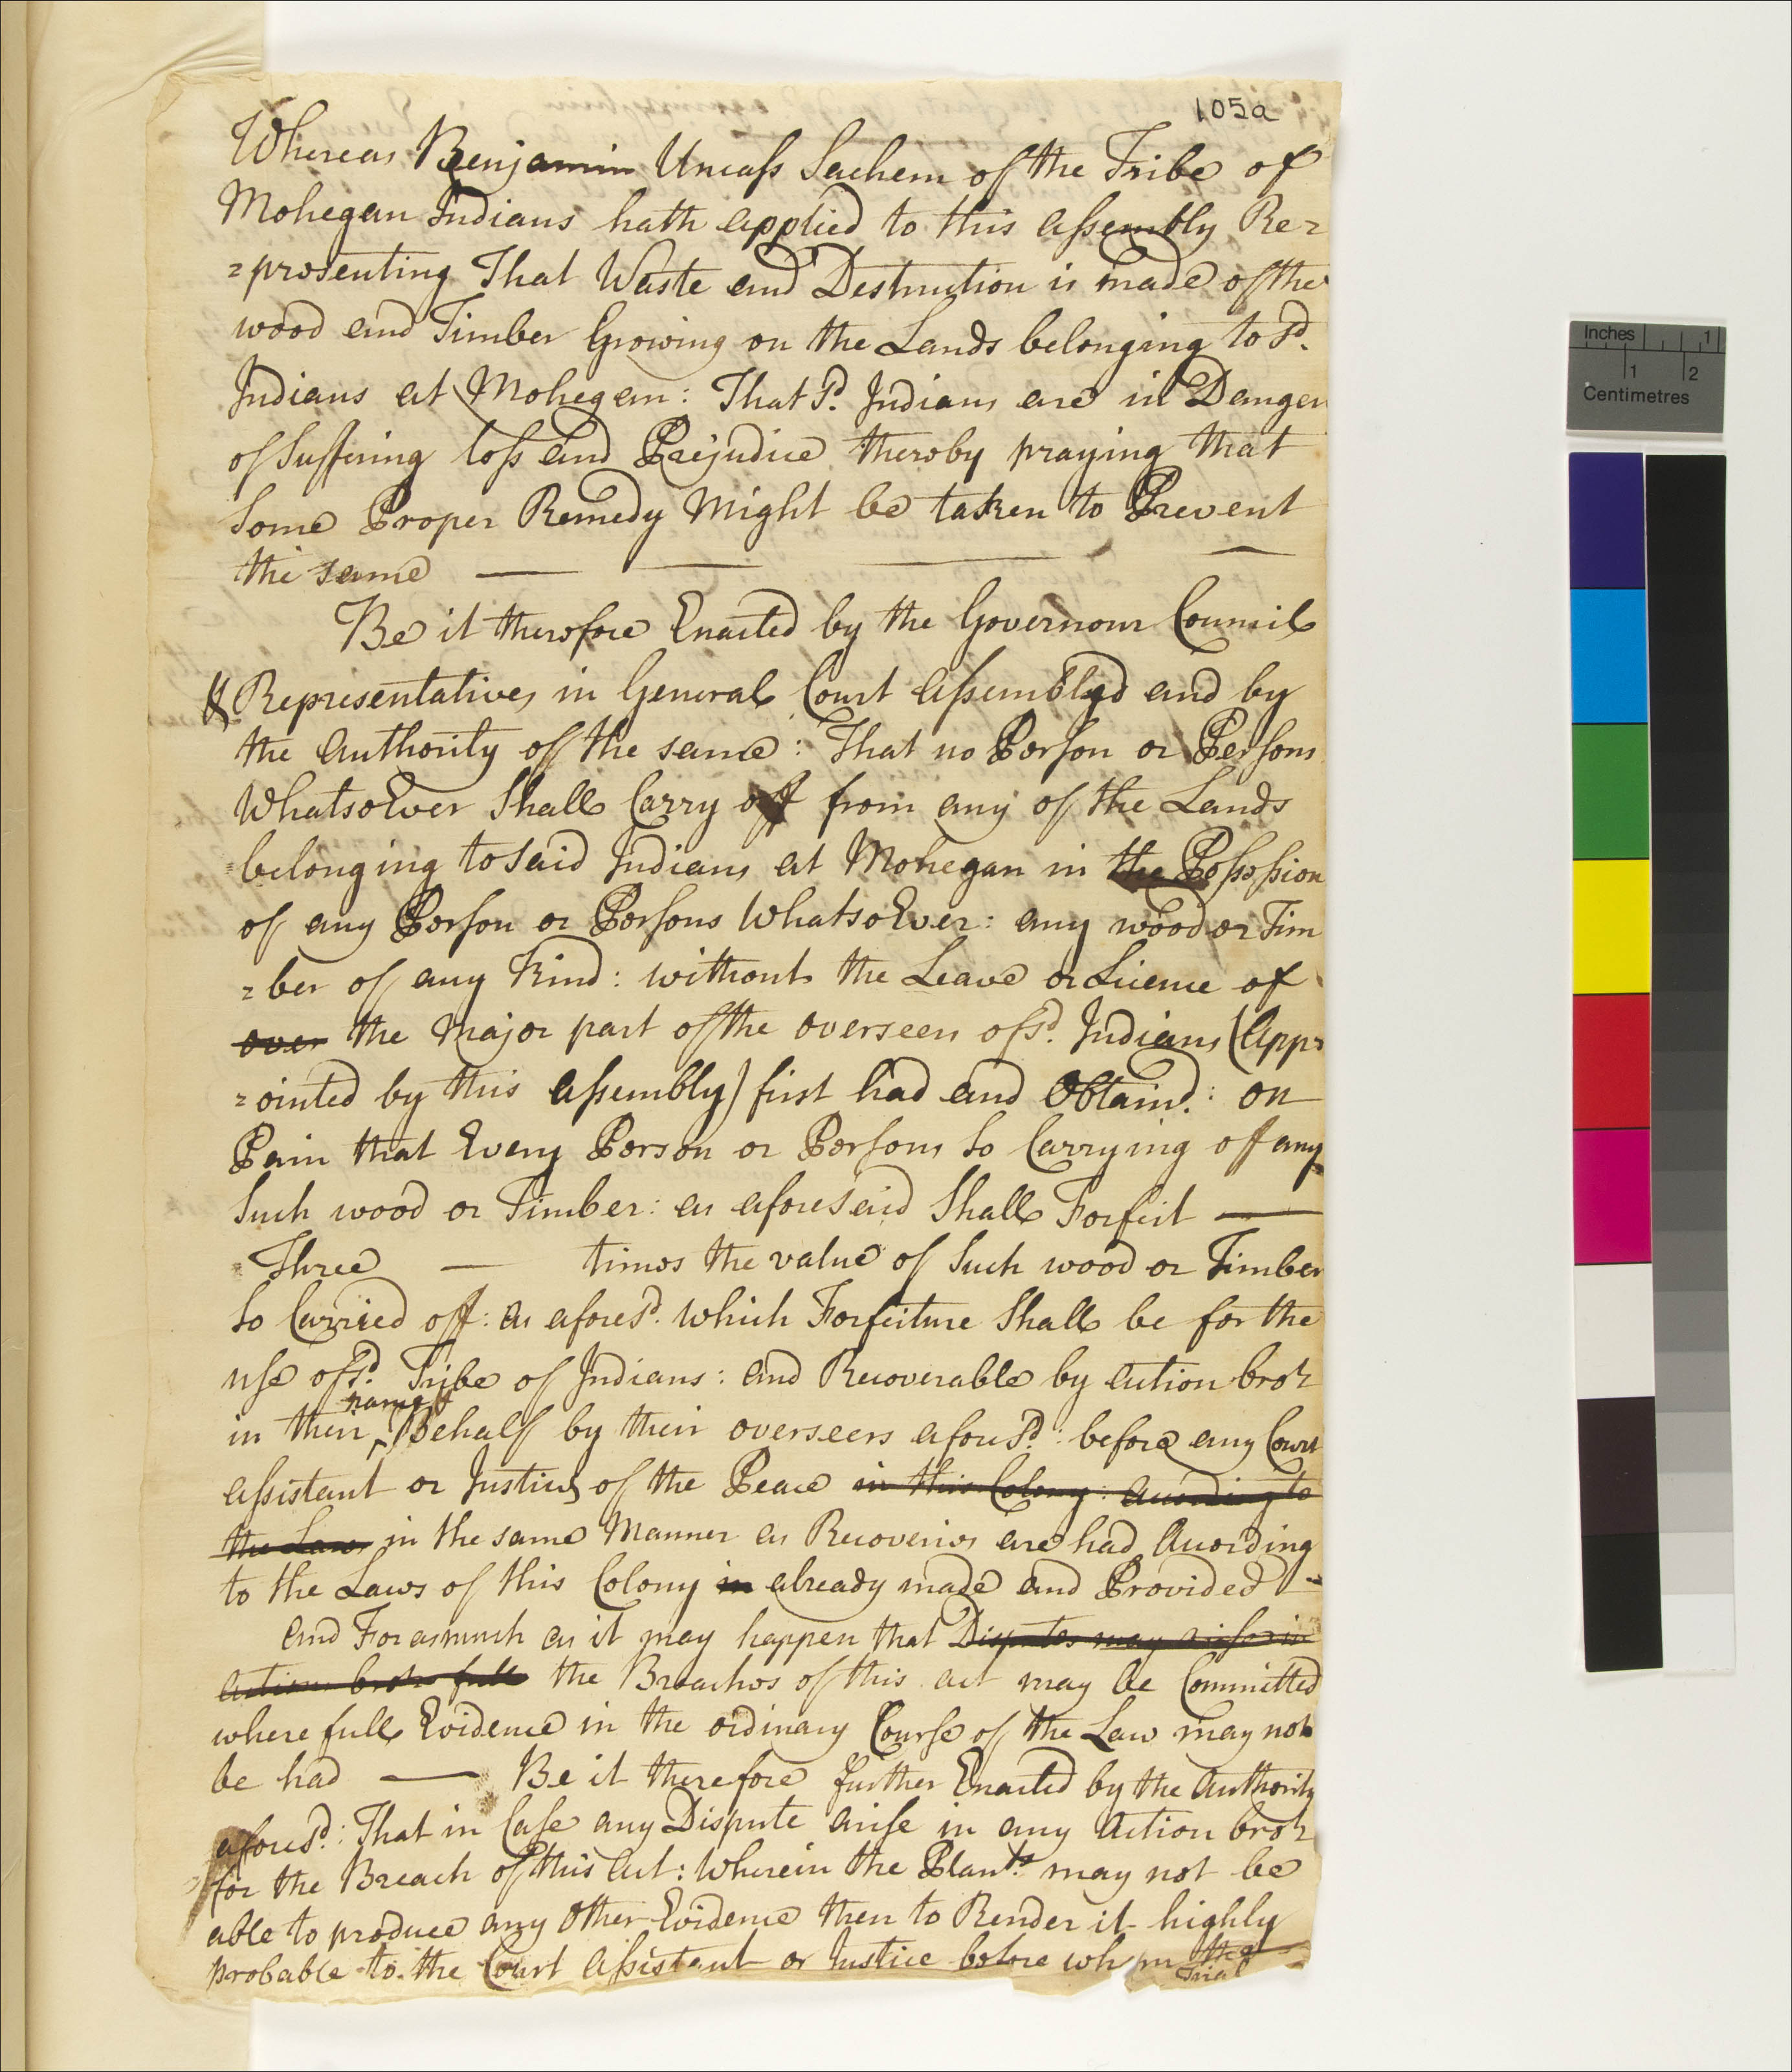 105a
Whereas Benjamin Uncass Sachem of the Tribe of
Mohegan Indians hath applied to this assembly Re=
=presenting That Waste and Destruction is made of the
wood and Timber Growing on the Lands belonging to sd.
Indians at Mohegan: That sd. Indians are in Danger
of Suffering loss and Prejudice thereby praying that
Some Proper Remedy Might be taken to Prevent
the same
Be it therefore Enacted by the Governour Council
& Representatives in General Court assembled and by
the authority of the same: That no Person or Persons
WhatsoEver Shall Carry off from any of the Lands
belonging to said Indians at Mohegan in the Possession
of any Person or Persons WhatsoEver: any wood or Tim
=ber of any Kind: without the Leave or Licence of
over the Major part of the overseers of sd. Indians (App=
=ointed by this assembly) first had and Obtaind.: on
Pain that Every Person or Persons so Carrying of any
Such wood or Timber: as aforesaid Shall Forfeit
=Three times the value of Such wood or Timber
so Carried off: as aforesd. which Forfeiture Shall be for the
use of sd. Tribe of Indians: and Recoverable by action brot
name &
in their ^ Behalf by their overseers aforesd.: before any Court
assistant or Justice of the Peace in this Colony: according to
the Laws in the same Manner as Recoveries are had According
to the Laws of this Colony in already made and Provided
and Forasmuch as it may happen that Disputes may arise in
actions brot full the Breaches of this act may be Committed
where full Evidence in the ordinary Course of the Law may not
be had Be it therefore further Enacted by the authority
aforesd.: That in Case any Dispute arise in any Action brot
for the Breach of this Act: Wherein the Plantf. may not be
able to produce any other Evidence then to Render it highly
probable to the Court Assistant or Justice before whom the
Trial
Inches 1
1 2
Centimetres